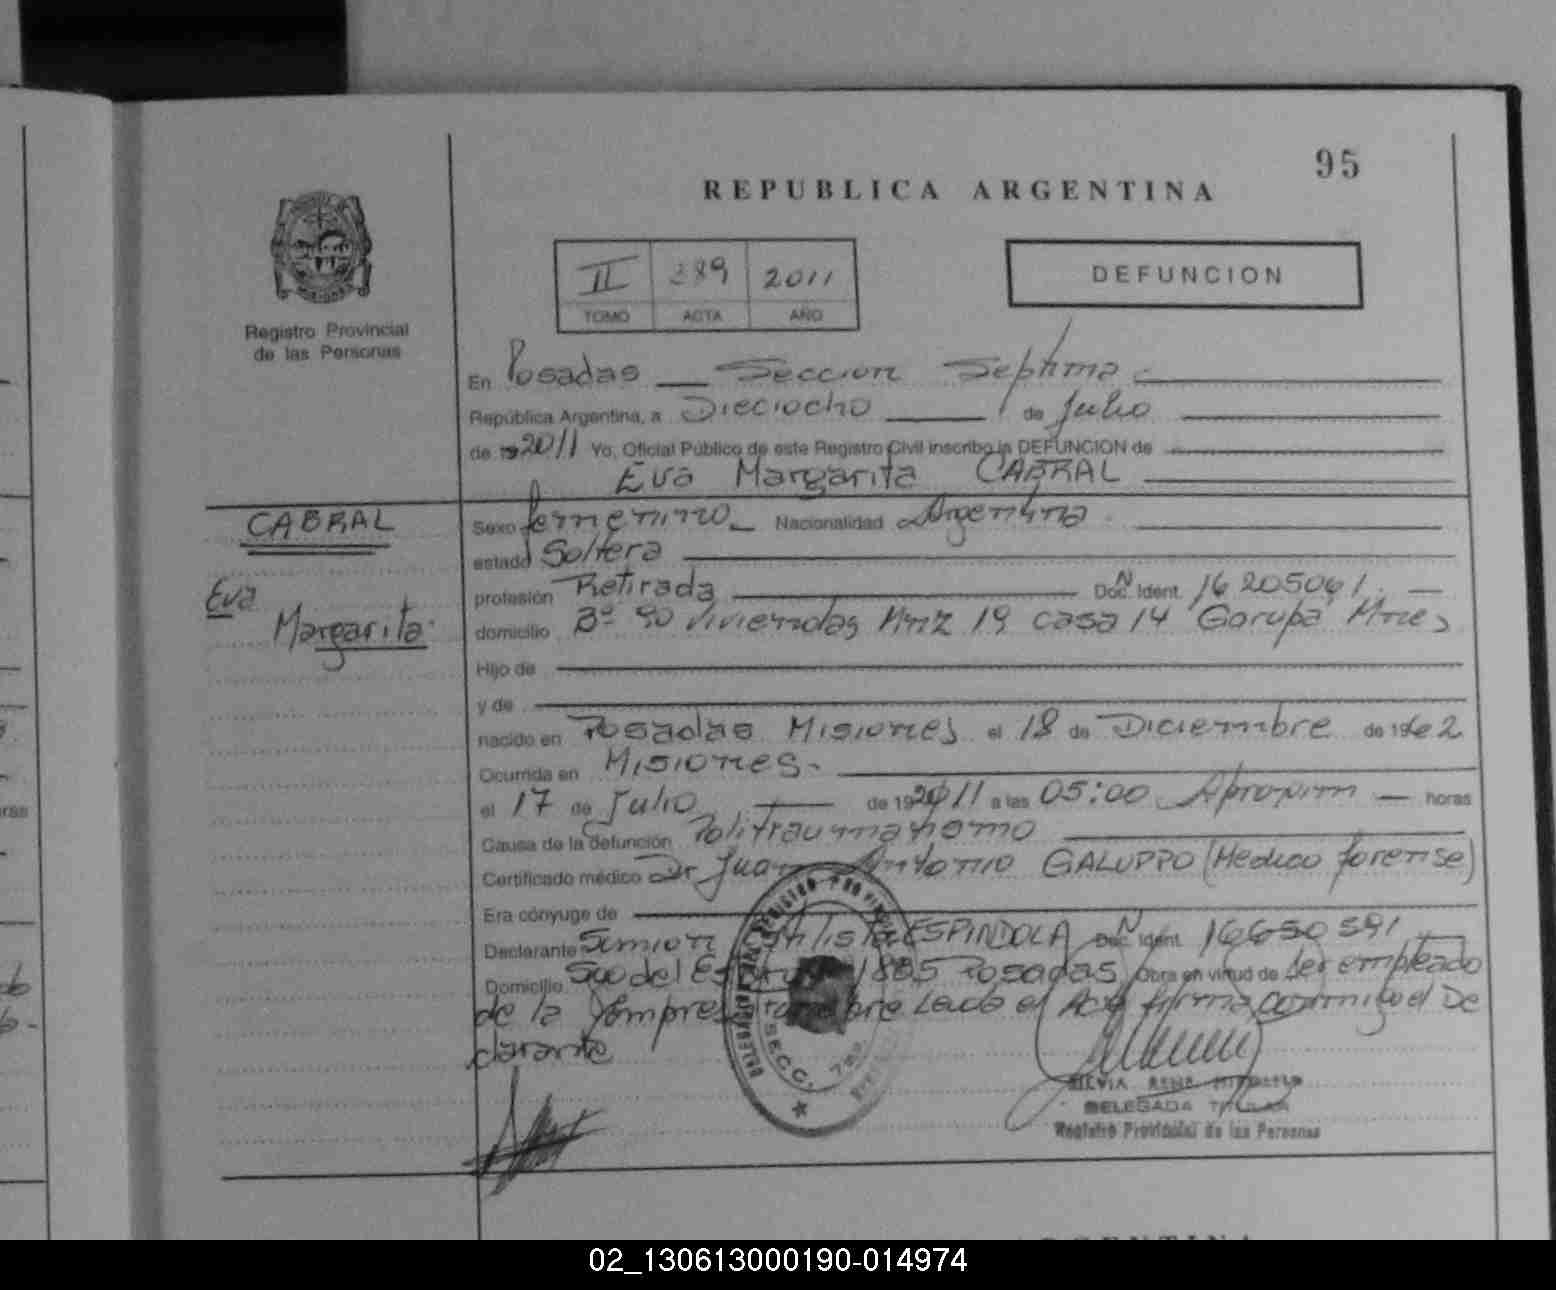 95
REPUBLICA ARGENTINA
II 389 2011
TOMO ACTA AÑO
DEFUNCION
Registro Provincial
de las Personas
En Posadas — Seccion Septima
República Argentina, a Dieciocho de Julio
de 2011 Yo, Oficial Público de este Registro Civil inscribo la DEFUNCION de
Eva Margarita CABRAL
CABRAL
Eva
Margarita
Sexo femenino Nacionalidad Argentina
estado Soltera
profesión Retirada Doc. Ident. N 16205061
domicilio Bº 90 Viviendas Mnz 19 casa 14 Garupa Mnes
Hijo de
y de
nacido en Posadas Misiones el 18 de Diciembre de 1962
Ocurrida en Misiones
el 17 de Julio de 2011 a las 05:00 Aproxim horas
Causa de la defunción Politraumatismo
Certificado médico Dr Juan Antonio GALUPPO (Medico forense)
Era cónyuge de
Declarante ESPINDOLA Doc. Ident. N 16650591
Domicilio 1885 Posadas Obra en virtud de ser empleado
de la Leida el Acta firma conmigo el De
clarante
SECC. 7
DELEGADA TITULAR
Registro Provincial de las Personas
ARGENTINA
02_130613000190-014974